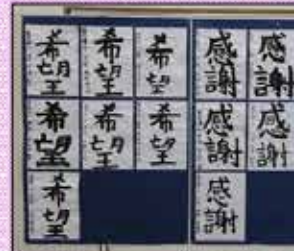 希望
希望
希望
希望
希望
希望
希望
感謝
感謝
感謝
感謝
感謝